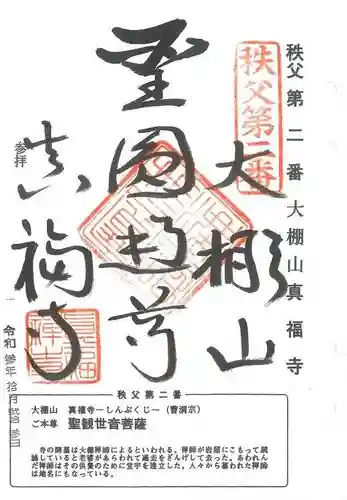 秩父 第二番 大棚山 真福寺
秩父第二番
大棚山
聖圓通尊
真福寺
参拝
令和 参年 拾月 弐拾 参日
秩父第二番
大棚山 真福寺―しんぷくじ―(曹洞宗)
ご本尊 聖観世音菩薩
寺の開基は大棚禅師によるといわれる。禅師が岩屋にこもって読
誦していると老婆があらわれて過去をざんげして去った。あわれん
だ禅師はその供養のために堂宇を建立した。人々から慕われた禅師
は地名にもなっている。